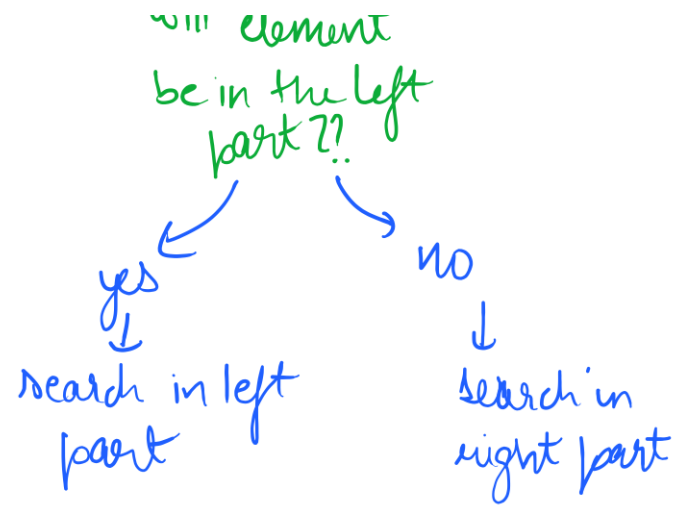 will element
be in the left
part??
yes
no
search in left
part
search in
right part